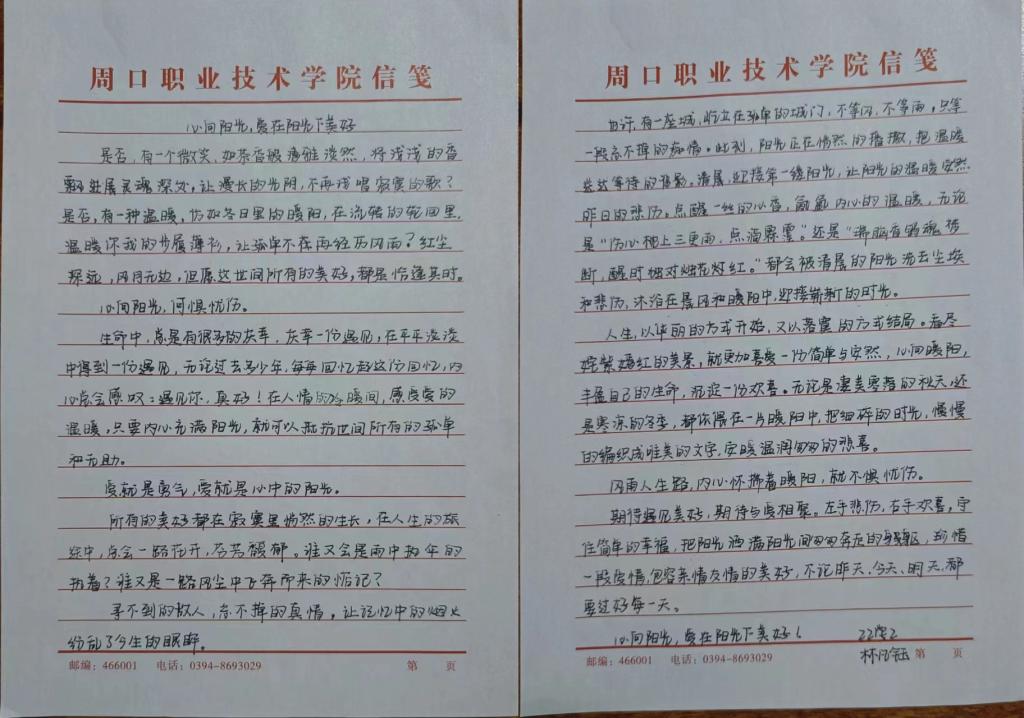 周口职业技术学院信笺
心向阳光,爱在阳光下美好
是否,有一个微笑,如茶香般清雅淡然,将浅浅的香
飘进屠灵魂深处,让漫长的光阴,不再浅唱寂寞的歌?
是否,有一种温暖,仿如冬日里的暖阳,在流转的轮回里,
温暖你我的步履薄衫,让孤单不在再经历风雨?红尘
深远,风月无边,但愿这世间所有的美好,都是恰逢其时。
心向阳光,何惧忧伤。
生命中,总是有很多的庆幸,庆幸一份遇见,在平平淡淡
中得到一份遇见,无论过去多少年,每每回忆起这份回忆,内
心总会感叹:遇见你,真好!在人情的冷暖间,感受爱的
温暖,只要内心充满阳光,就可以抵抗世间所有的孤单
和无助。
爱就是勇气,爱就是心中的阳光。
所有的美好都在寂寞里悄然的生长,在人生的旅
途中,总会一路花开,芬芳馥郁。谁又会是雨中执伞的
执着?谁又是一路风尘中飞奔而来的惦记?
寻不到的故人,忘不掉的真情。让记忆中的烟火
纷乱了今生的眼眸。
邮编:466001 电话:0394-8693029 第 页
周口职业技术学院信笺
也许,有一座城,伫立在孤单的城门,不等风,不等雨,只等
一段忘不掉的痴情。此刻,阳光正在悄然的播撒,把温暖
送达等待的身影。清晨,迎接第一缕阳光,让阳光的温暖安然
昨日的悲伤。点醒一丝的心香,氤氲内心的温暖,无论
是“伤心枕上三更雨,点滴霖霪。”还是“瑞脑香销魂梦
断,醒时独对烛花灯红。”都会被清晨的阳光洗去尘埃
和悲伤,沐浴在晨风和暖阳中,迎接崭新的时光。
人生,以华丽的方式开始,又以落寞的方式结局。看尽
姹紫嫣红的美景,就更加喜爱一份简单与安然,心向暖阳,
丰盈自己的生命,沉淀一份欢喜。无论是凄美零落的秋天,还
是寒凉的冬季,都依偎在一片暖阳中,把细碎的时光,慢慢
的编织成唯美的文字,安暖温润匆匆的悲喜。
风雨人生路,内心怀揣着暖阳,就不惧忧伤。
期待遇见美好,期待与爱相聚。左手悲伤,右手欢喜,守
住简单的幸福,把阳光洒满阳光间匆匆奔波的身躯,珍惜
一段爱情,包容亲情友情的美好,不论昨天、今天、明天,都
要过好每一天。
心向阳光,爱在阳光下美好!
邮编:466001 电话:0394-8693029 第 页